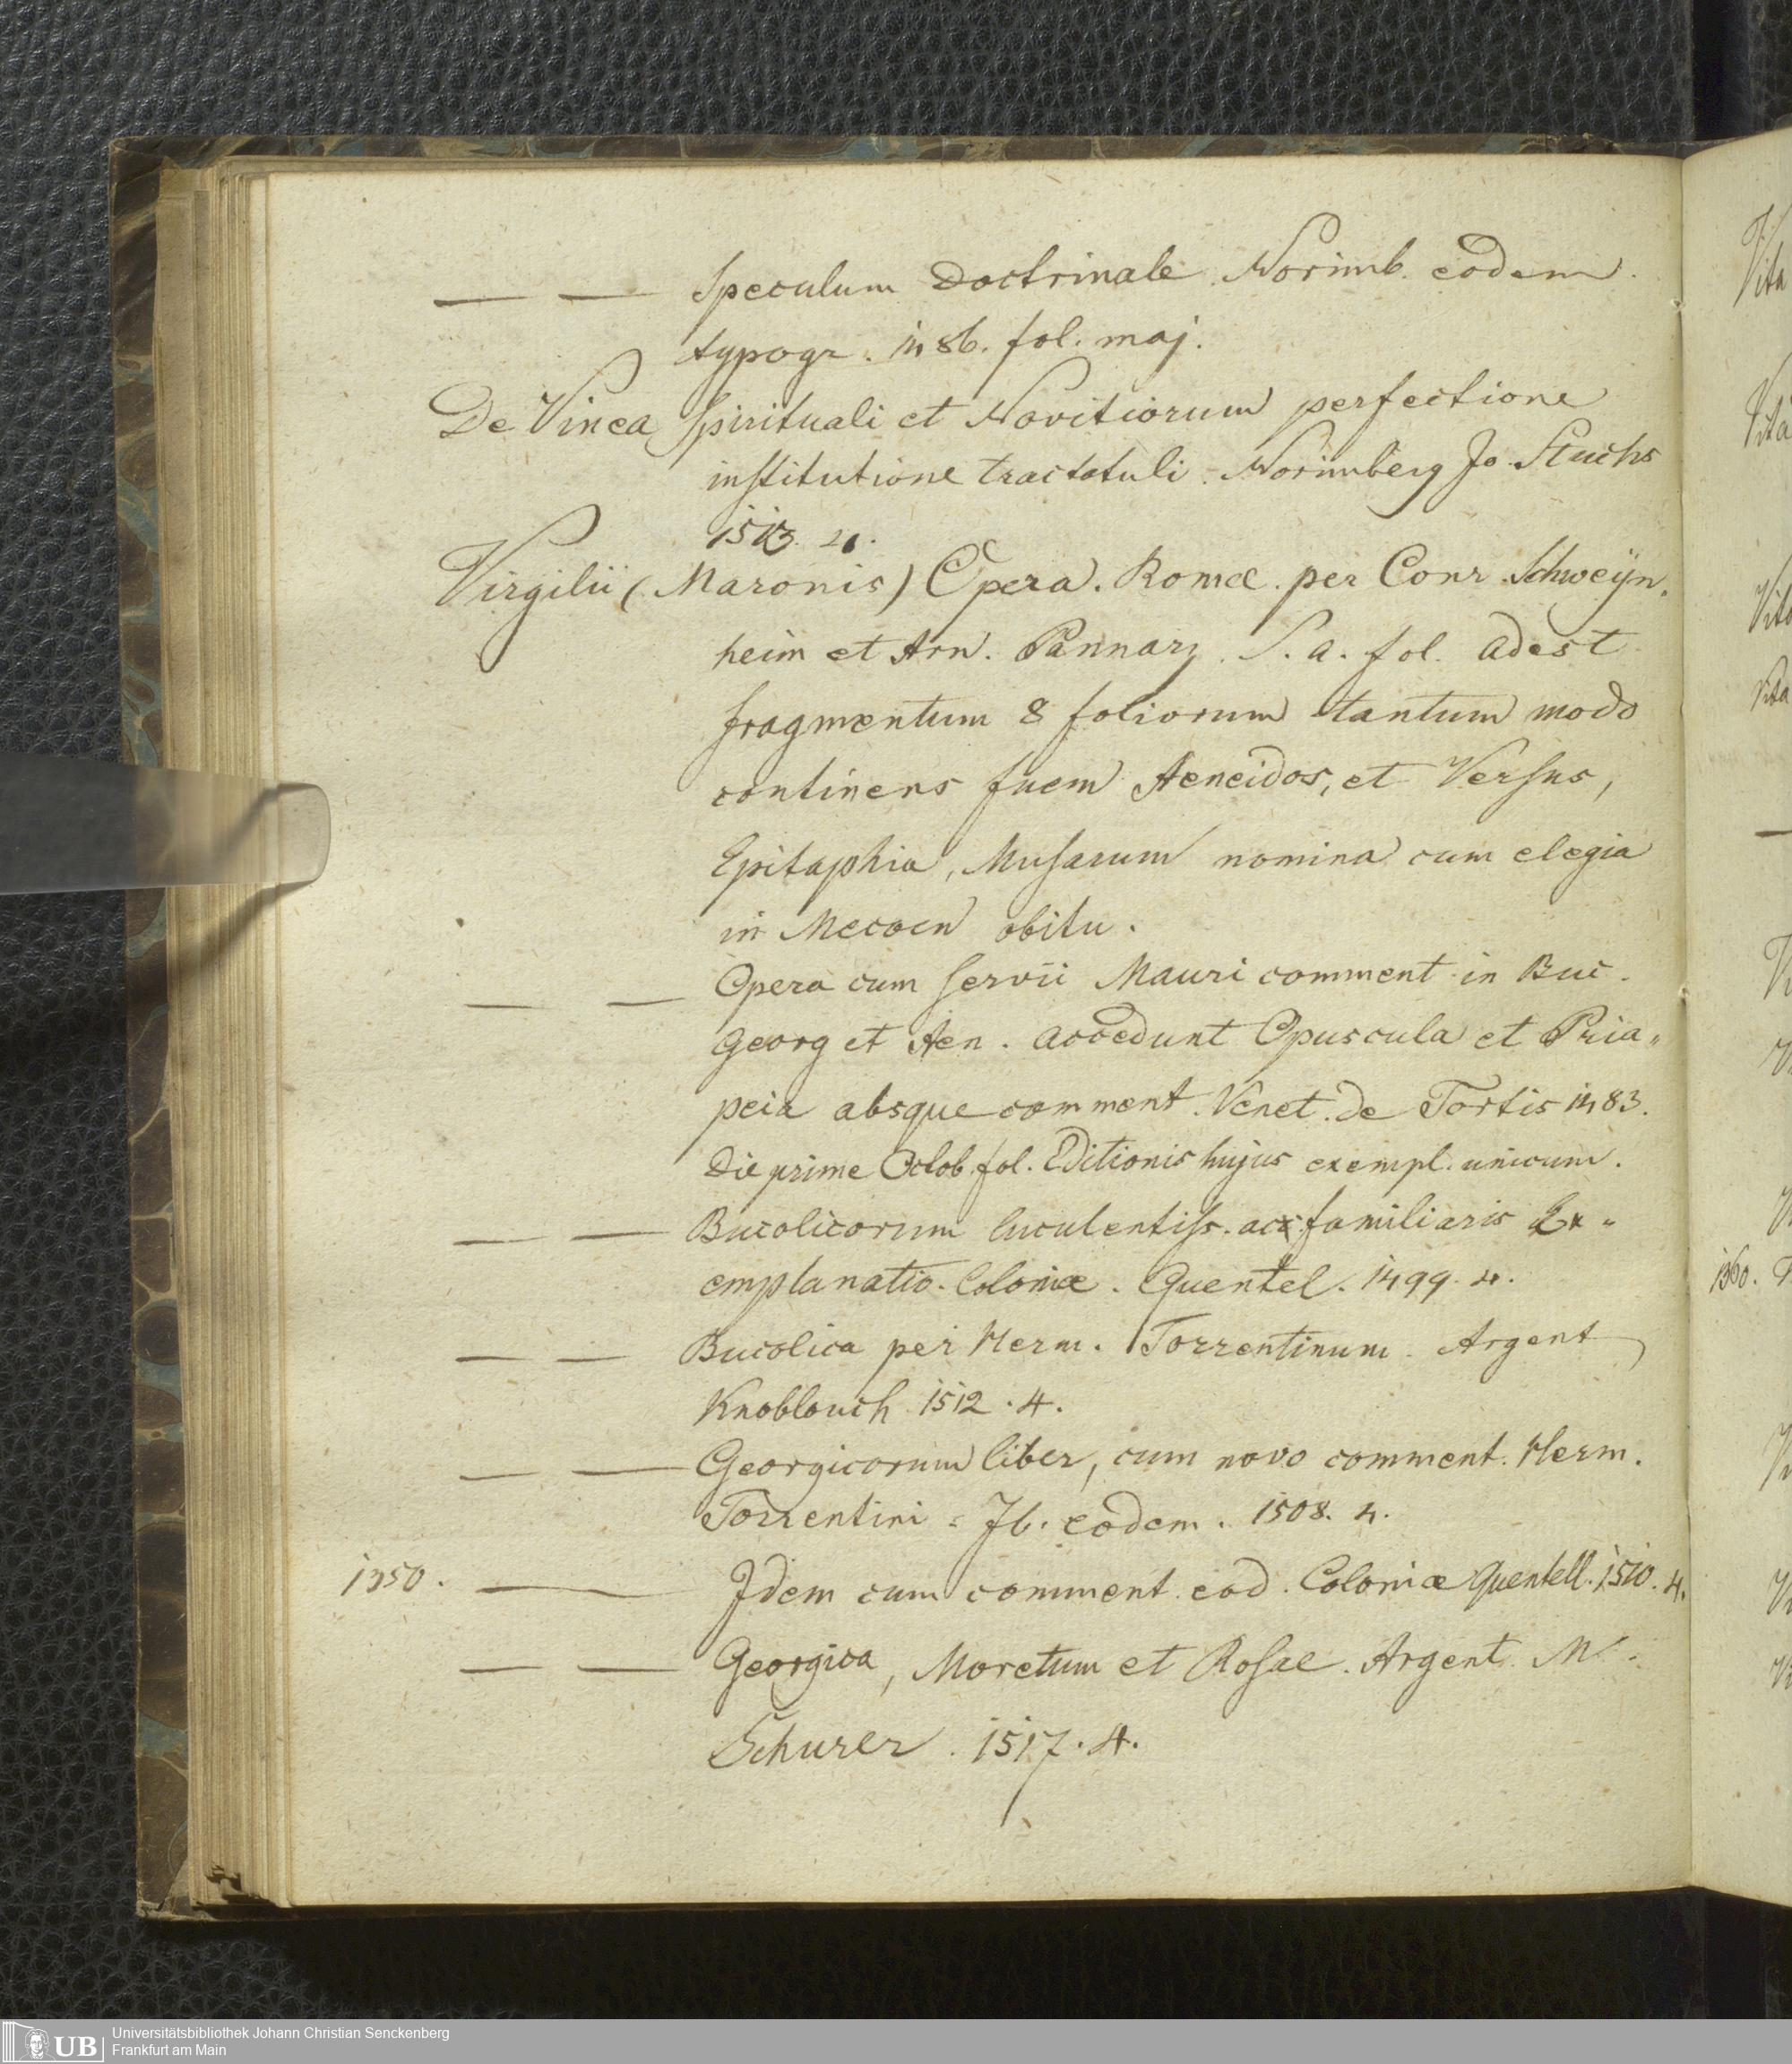 — — Speculum Doctrinale. Norimb. eodem.
typogr. 1486. fol. maj.
De Vinea Spirituali et Novitiorum perfectione
institutione tractatuli. Norimberg Jo. Stuchs
1513. 4.
Virgilii (Maronis) Opera. Romæ. per Conr. Schweijn-
heim et Arn. Pannarz. S. a. fol. adest
fragmentum 8 foliorum tantum modo
continens finem Aeneidos, et Versus,
Epitaphia, Musarum nomina cum elegia
in Mecaen obitu.
— — Opera cum Servii Mauri comment. in Buc.
Georg et Aen. accedunt Opuscula et Pria-
peia absque comment. Venet. de Tortis 1483.
Die prime Octob. fol. Editionis hujus exempl. unicum.
— — Bucolicorum luculentiss. ac familiaris Ex-
emplanatio. Coloniæ. Quentel. 1499. 4.
— — Bucolica per Herm. Torrentinum. Argent
Knoblouch 1512. 4.
— — Georgicorum liber, cum novo comment. Herm.
Torrentini. Ib. eodem. 1508. 4.
1350. — Idem cum comment. eod. Coloniæ Quentell. 1510. 4.
— — Georgica, Moretum et Rosae. Argent. M.
Schurer. 1517. 4.
Vita
Vita
Vita
Vita
1360.
UB
Universitätsbibliothek Johann Christian Senckenberg
Frankfurt am Main